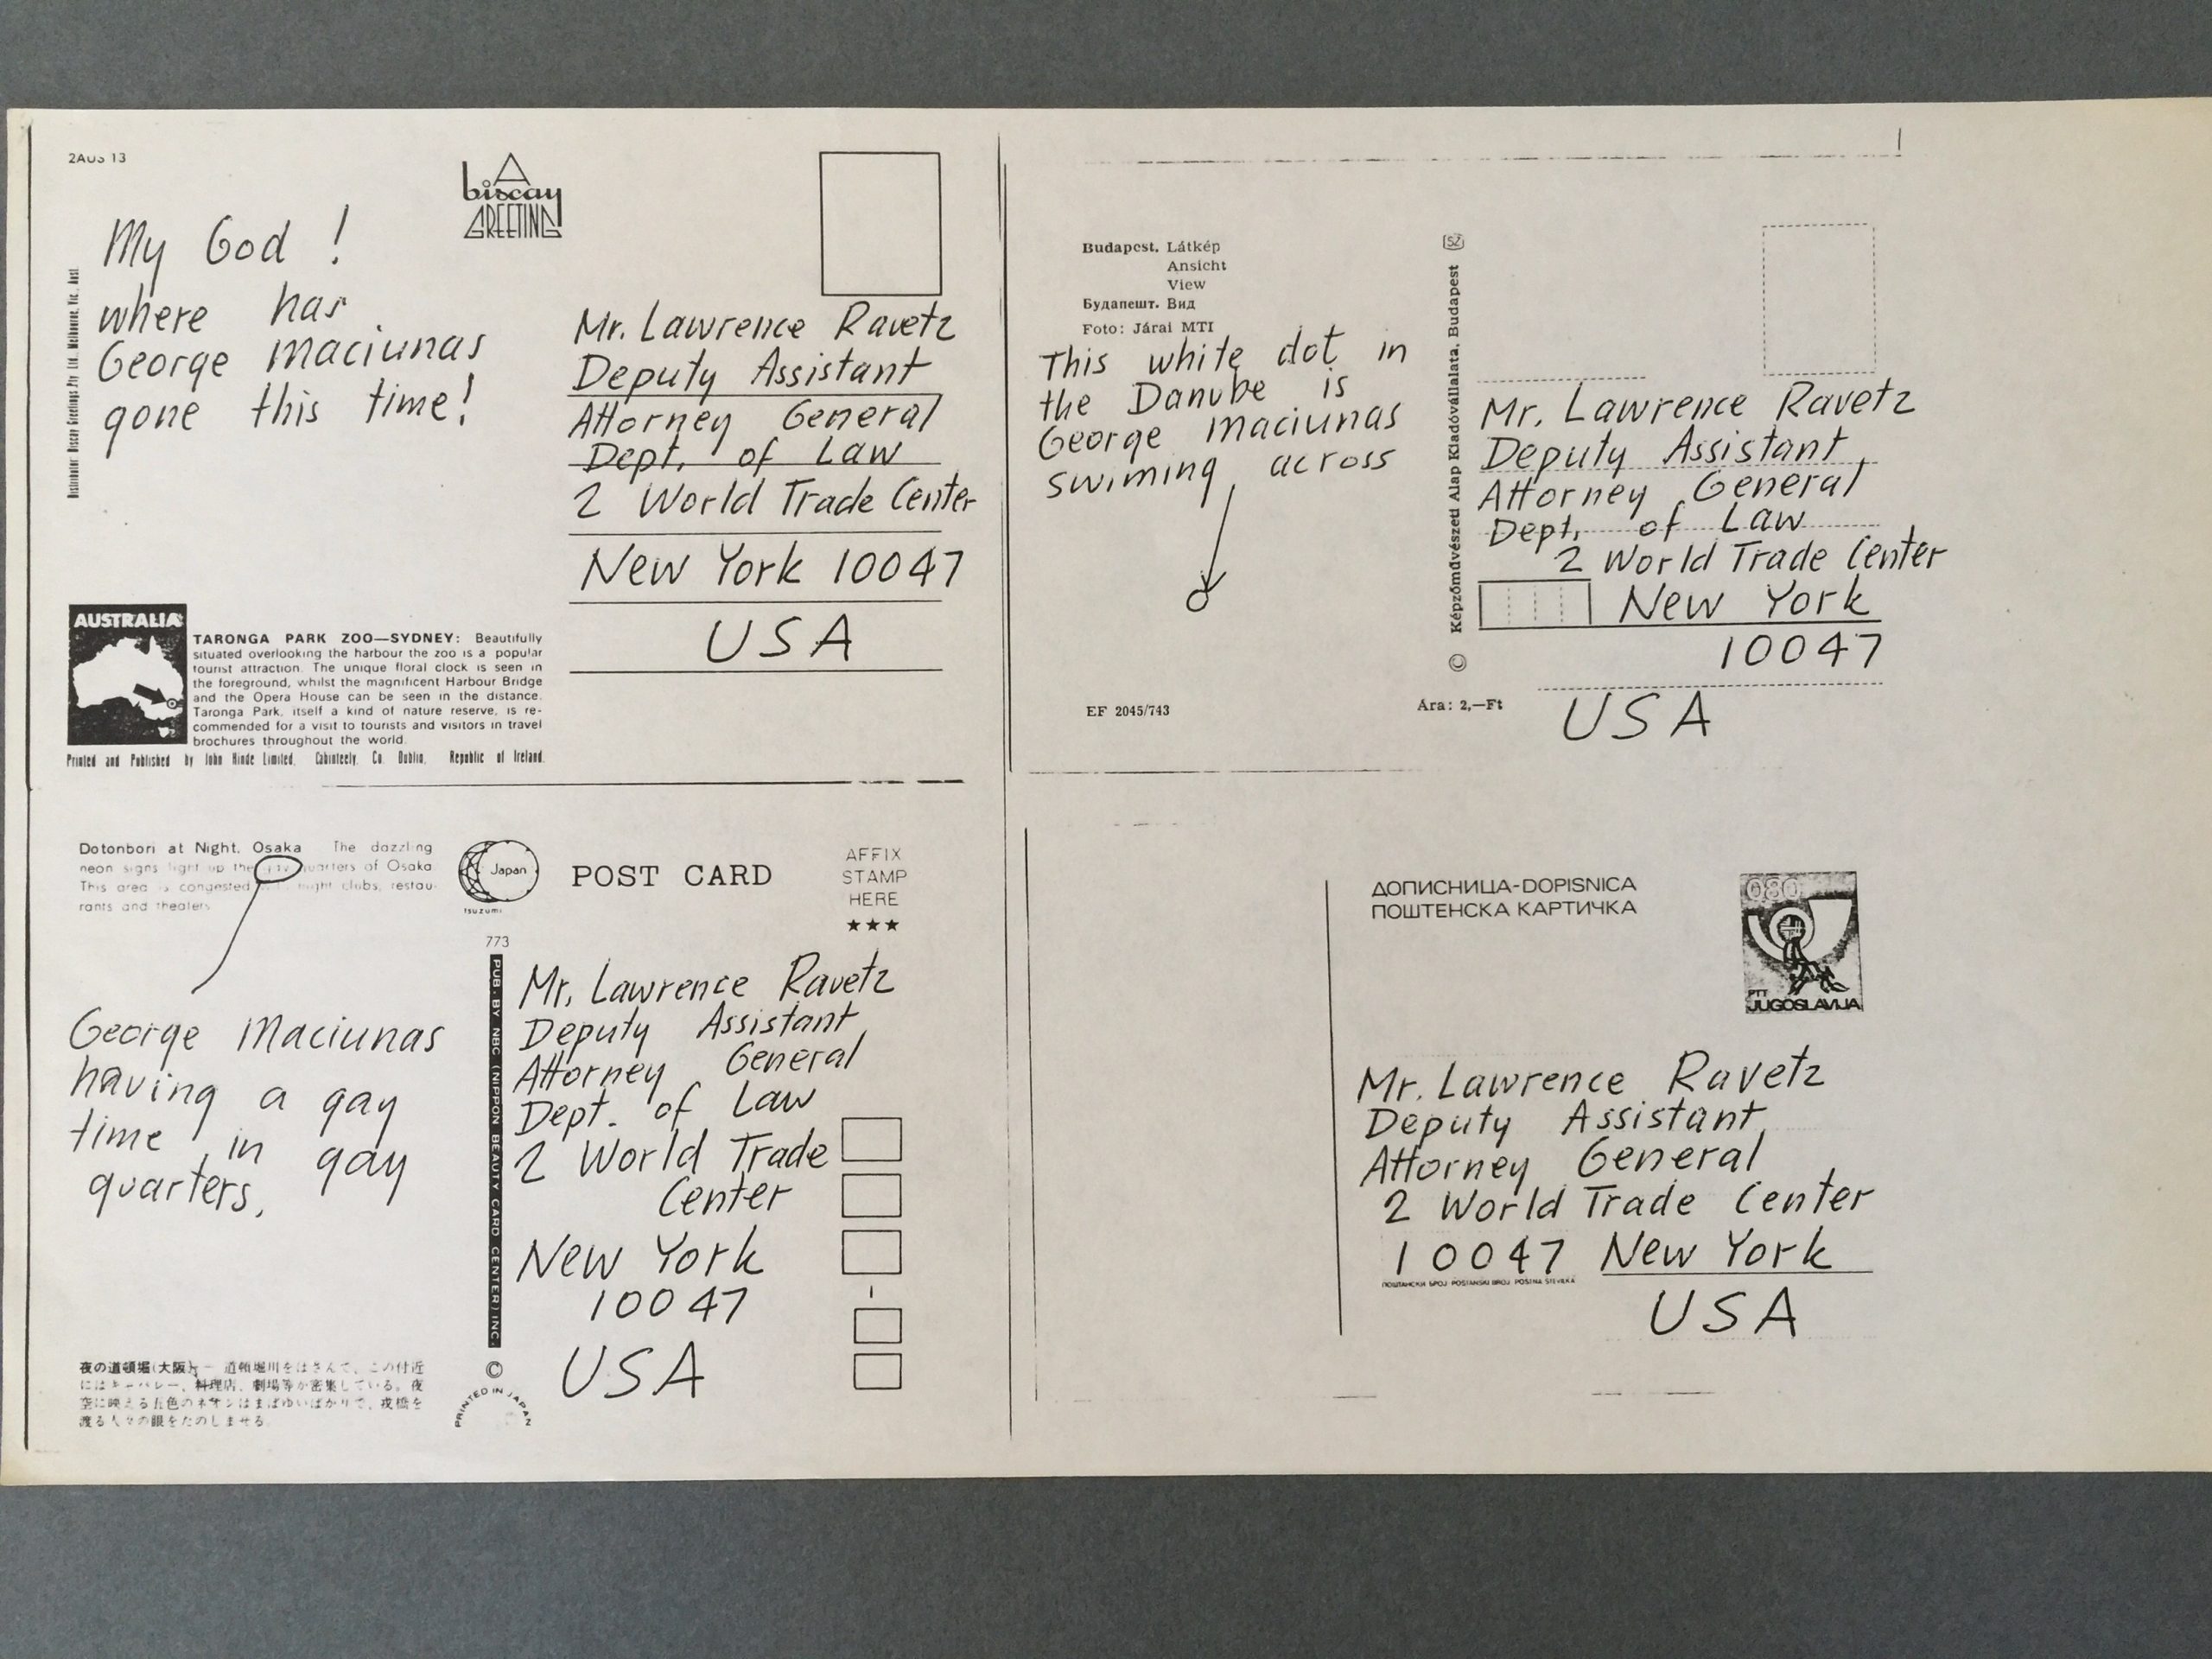 2AUS 13
A
biscay
GREETING
My God !
where has
George Maciunas
gone this time!
Distributor: Biscay Greetings Pty. Ltd. Melbourne, Vic., Aust.
Mr. Lawrence Ravetz
Deputy Assistant
Attorney General
Dept. of Law
2 World Trade Center
New York 10047
USA
AUSTRALIA
TARONGA PARK ZOO—SYDNEY: Beautifully
situated overlooking the harbour the zoo is a popular
tourist attraction. The unique floral clock is seen in
the foreground, whilst the magnificent Harbour Bridge
and the Opera House can be seen in the distance.
Taronga Park, itself a kind of nature reserve, is re-
commended for a visit to tourists and visitors in travel
brochures throughout the world.
Printed and Published by John Hinde Limited, Cabinteely, Co. Dublin, Republic of Ireland.
Budapest. Látkép
Ansicht
View
Будапешт. Вид
Foto: Járai MTI
This white dot in
the Danube is
George Maciunas
swiming across
EF 2045/743
SZ
© Képzőművészeti Alap Kiadóvállalata, Budapest
Ára: 2,—Ft
Mr. Lawrence Ravetz
Deputy Assistant
Attorney General
Dept. of Law
2 World Trade Center
New York
10047
USA
Dotonbori at Night, Osaka The dazzling
neon signs light up the gay quarters of Osaka.
This area is congested night clubs, restau-
rants and theaters
George Maciunas
having a gay
time in gay
quarters.
夜の道頓堀(大阪)— 道頓堀川をはさんで、この付近
にはキャバレー、料理店、劇場等が密集している。夜
空に映える五色のネオンはまばゆいばかりで、戎橋を
渡る人々の眼をたのしませる
Japan
tsuzumi
POST CARD
AFFIX
STAMP
HERE
★★★
773
PUB. BY NBC (NIPPON BEAUTY CARD CENTER) INC.
©
PRINTED IN JAPAN
Mr. Lawrence Ravetz
Deputy Assistant
Attorney General
Dept. of Law
2 World Trade
Center
New York
10047
USA
ДОПИСНИЦА-DOPISNICA
ПОШТЕНСКА КАРТИЧКА
080
PTT
JUGOSLAVIJA
Mr. Lawrence Ravetz
Deputy Assistant
Attorney General
2 World Trade Center
10047 New York
ПОШТАНСКИ БРОЈ POŠTANSKI BROJ POŠTNA ŠTEVILKA
USA